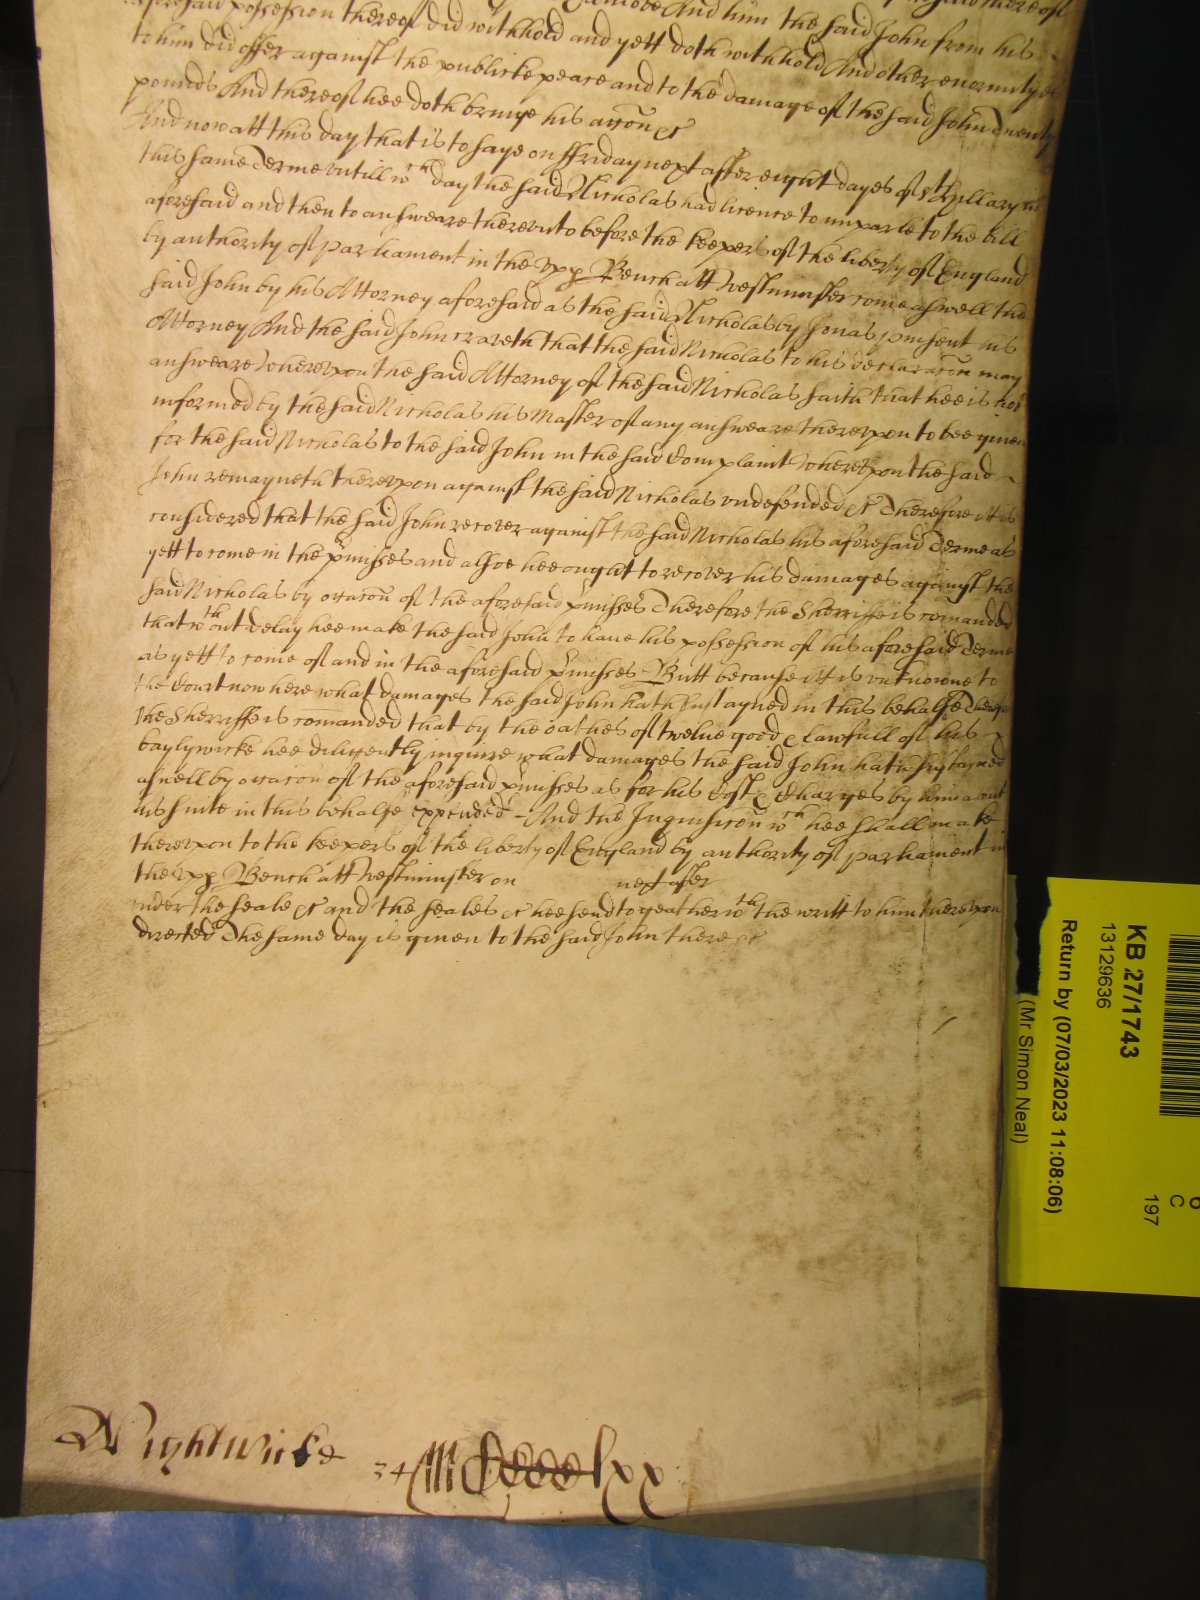 aforesaid possession thereof And him the said John from his
to him did offer against the publicke peace and to the damage of the said John Twenty
possession thereof did withhold and yett doth withhold And other enormityes
pounds And thereof hee doth bringe his accōn &c
And now att this day that is to saye on ffriday next after eight dayes of St Hillary in
this same Terme untill wch day the said Nicholas had licence to imparle to the bill
aforesaid and then to answeare thereunto before the keepers of the liberty of England
by authority of parliament in the upp Bench att Westminster come aswell the
said John by his Attorney aforesaid as the said Nicholas by Jonas pinsent his
Attorney And the said John craveth that the said Nicholas to his declaracōn may
answeare Whereupon the said Attorney of the said Nicholas saith that hee is not
informed by the said Nicholas his Master of any answeare thereupon to bee given
for the said Nicholas to the said John in the said Complaint Whereupon the said
John remayneth thereupon against the said Nicholas undefended &c Therefore itt is
considered that the said John recover against the said Nicholas his aforesaid Terme as
yett to come in the p̄misses and alsoe hee ought to recover his damages against the
said Nicholas by occacōn of the aforesaid p̄misses Therefore the Sherriffe is comanded
that wthout delay hee make the said John to have his possession of his aforesaid Terme
as yett to come of and in the aforesaid p̄misses Butt because itt is unknowne to
the Court now here what damages the said John hath sustayned in this behalfe Therefore
the Sherriffe is com̄anded that by the oathes of twelve good & lawfull of his
baylywicke hee diligently inquire what damages the said John hath sustayned
aswell by occacon of the aforesaid p̄misses as for his Costs & Charges by him about
his suite in this behalfe expended And the Inquisicōn wch hee shall make
thereupon to the keepers of the liberty of England by authority of parliament in
the upp Bench att Westminster on next after
under the seale &c and the seales &c hee send togeather wth the writt to him thereupon
directed The same day is given to the said John there &c
Wightwicke
KB 27/1743
13129636
Return by (07/03/2023 11:08:06)
(Mr Simon Neal)
6
C
197